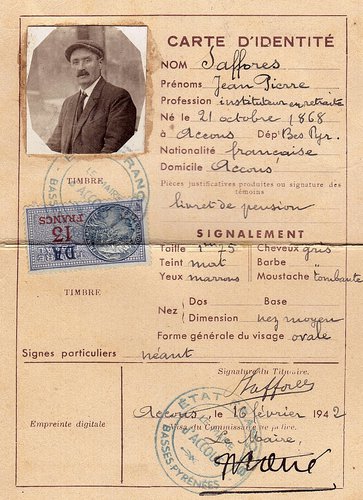 CARTE D'IDENTITÉ
NOM Saffores
Prénoms Jean Pierre
Profession instituteur en retraite
Né le 21 octobre 1868
à Accous Dépt Bses Pyr.
Nationalité française
Domicile Accous
Pièces justificatives produites ou signature des témoins
livret de pension
TIMBRE
DA
13
FRANCS
SIGNALEMENT
Taille 1m 75 Cheveux gris
Teint mat Barbe "
Yeux marrons Moustache tombante
TIMBRE
Nez Dos Base
Dimension nez moyen
Forme générale du visage ovale
Signes particuliers néant
Signature du Titulaire,
Saffores
Accous, le 16 février 1942
Le Maire,
Empreinte digitale
ÉTAT
BASSES PYRÉNÉES